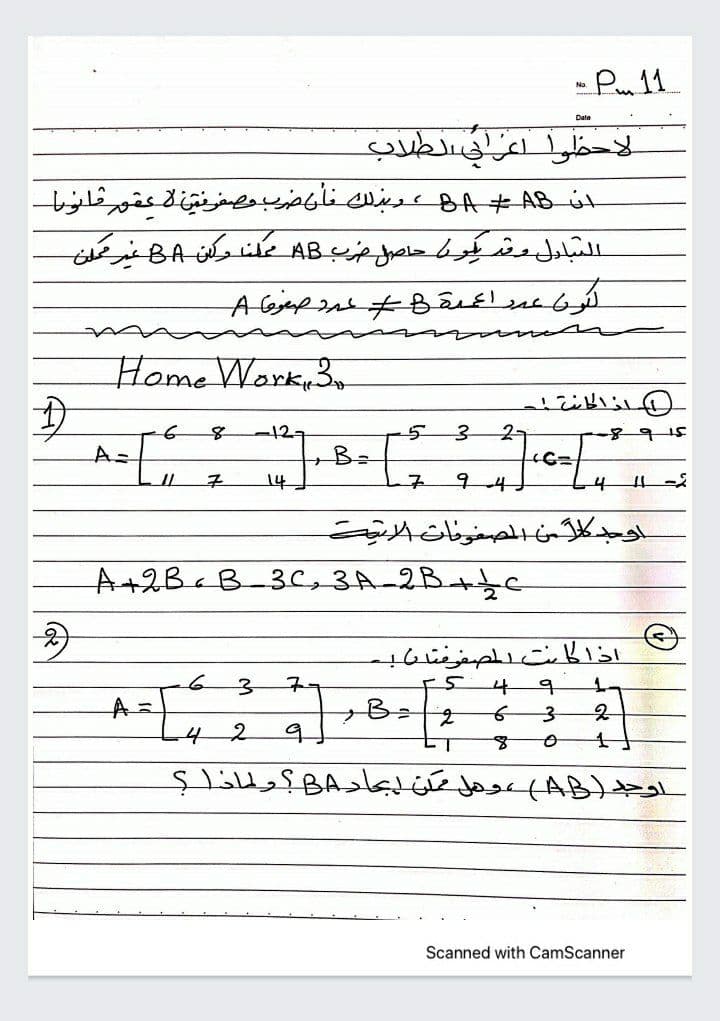 No. P_m 11
Date
لاحظوا اعزائي الطلاب
ان BA ≠ AB ، وبذلك فأن ضرب مصفوفتين لا يحقق قانون
التبادل وقد يكون حاصل ضرب AB ممكنا ولكن BA غير ممكن
لكون عدد اعمدة B ≠ عدد صفوف A
Home Work "3"
1) ① اذا كانت :-
A = [6 8 -12
11 7 14] , B = [5 3 2
7 9 -4] ، C = [-8 9 15
4 11 -2
اوجد كلاً من المصفوفات الاتية
A+2B ، B-3C, 3A-2B+½C
2) ②
اذا كانت المصفوفتان :-
A = [6 3 7
4 2 9] , B = [5 4 9 1
2 6 3 2
1 8 0 1]
اوجد (AB) ، وهل ممكن ايجاد BA ؟ ولماذا ؟
Scanned with CamScanner